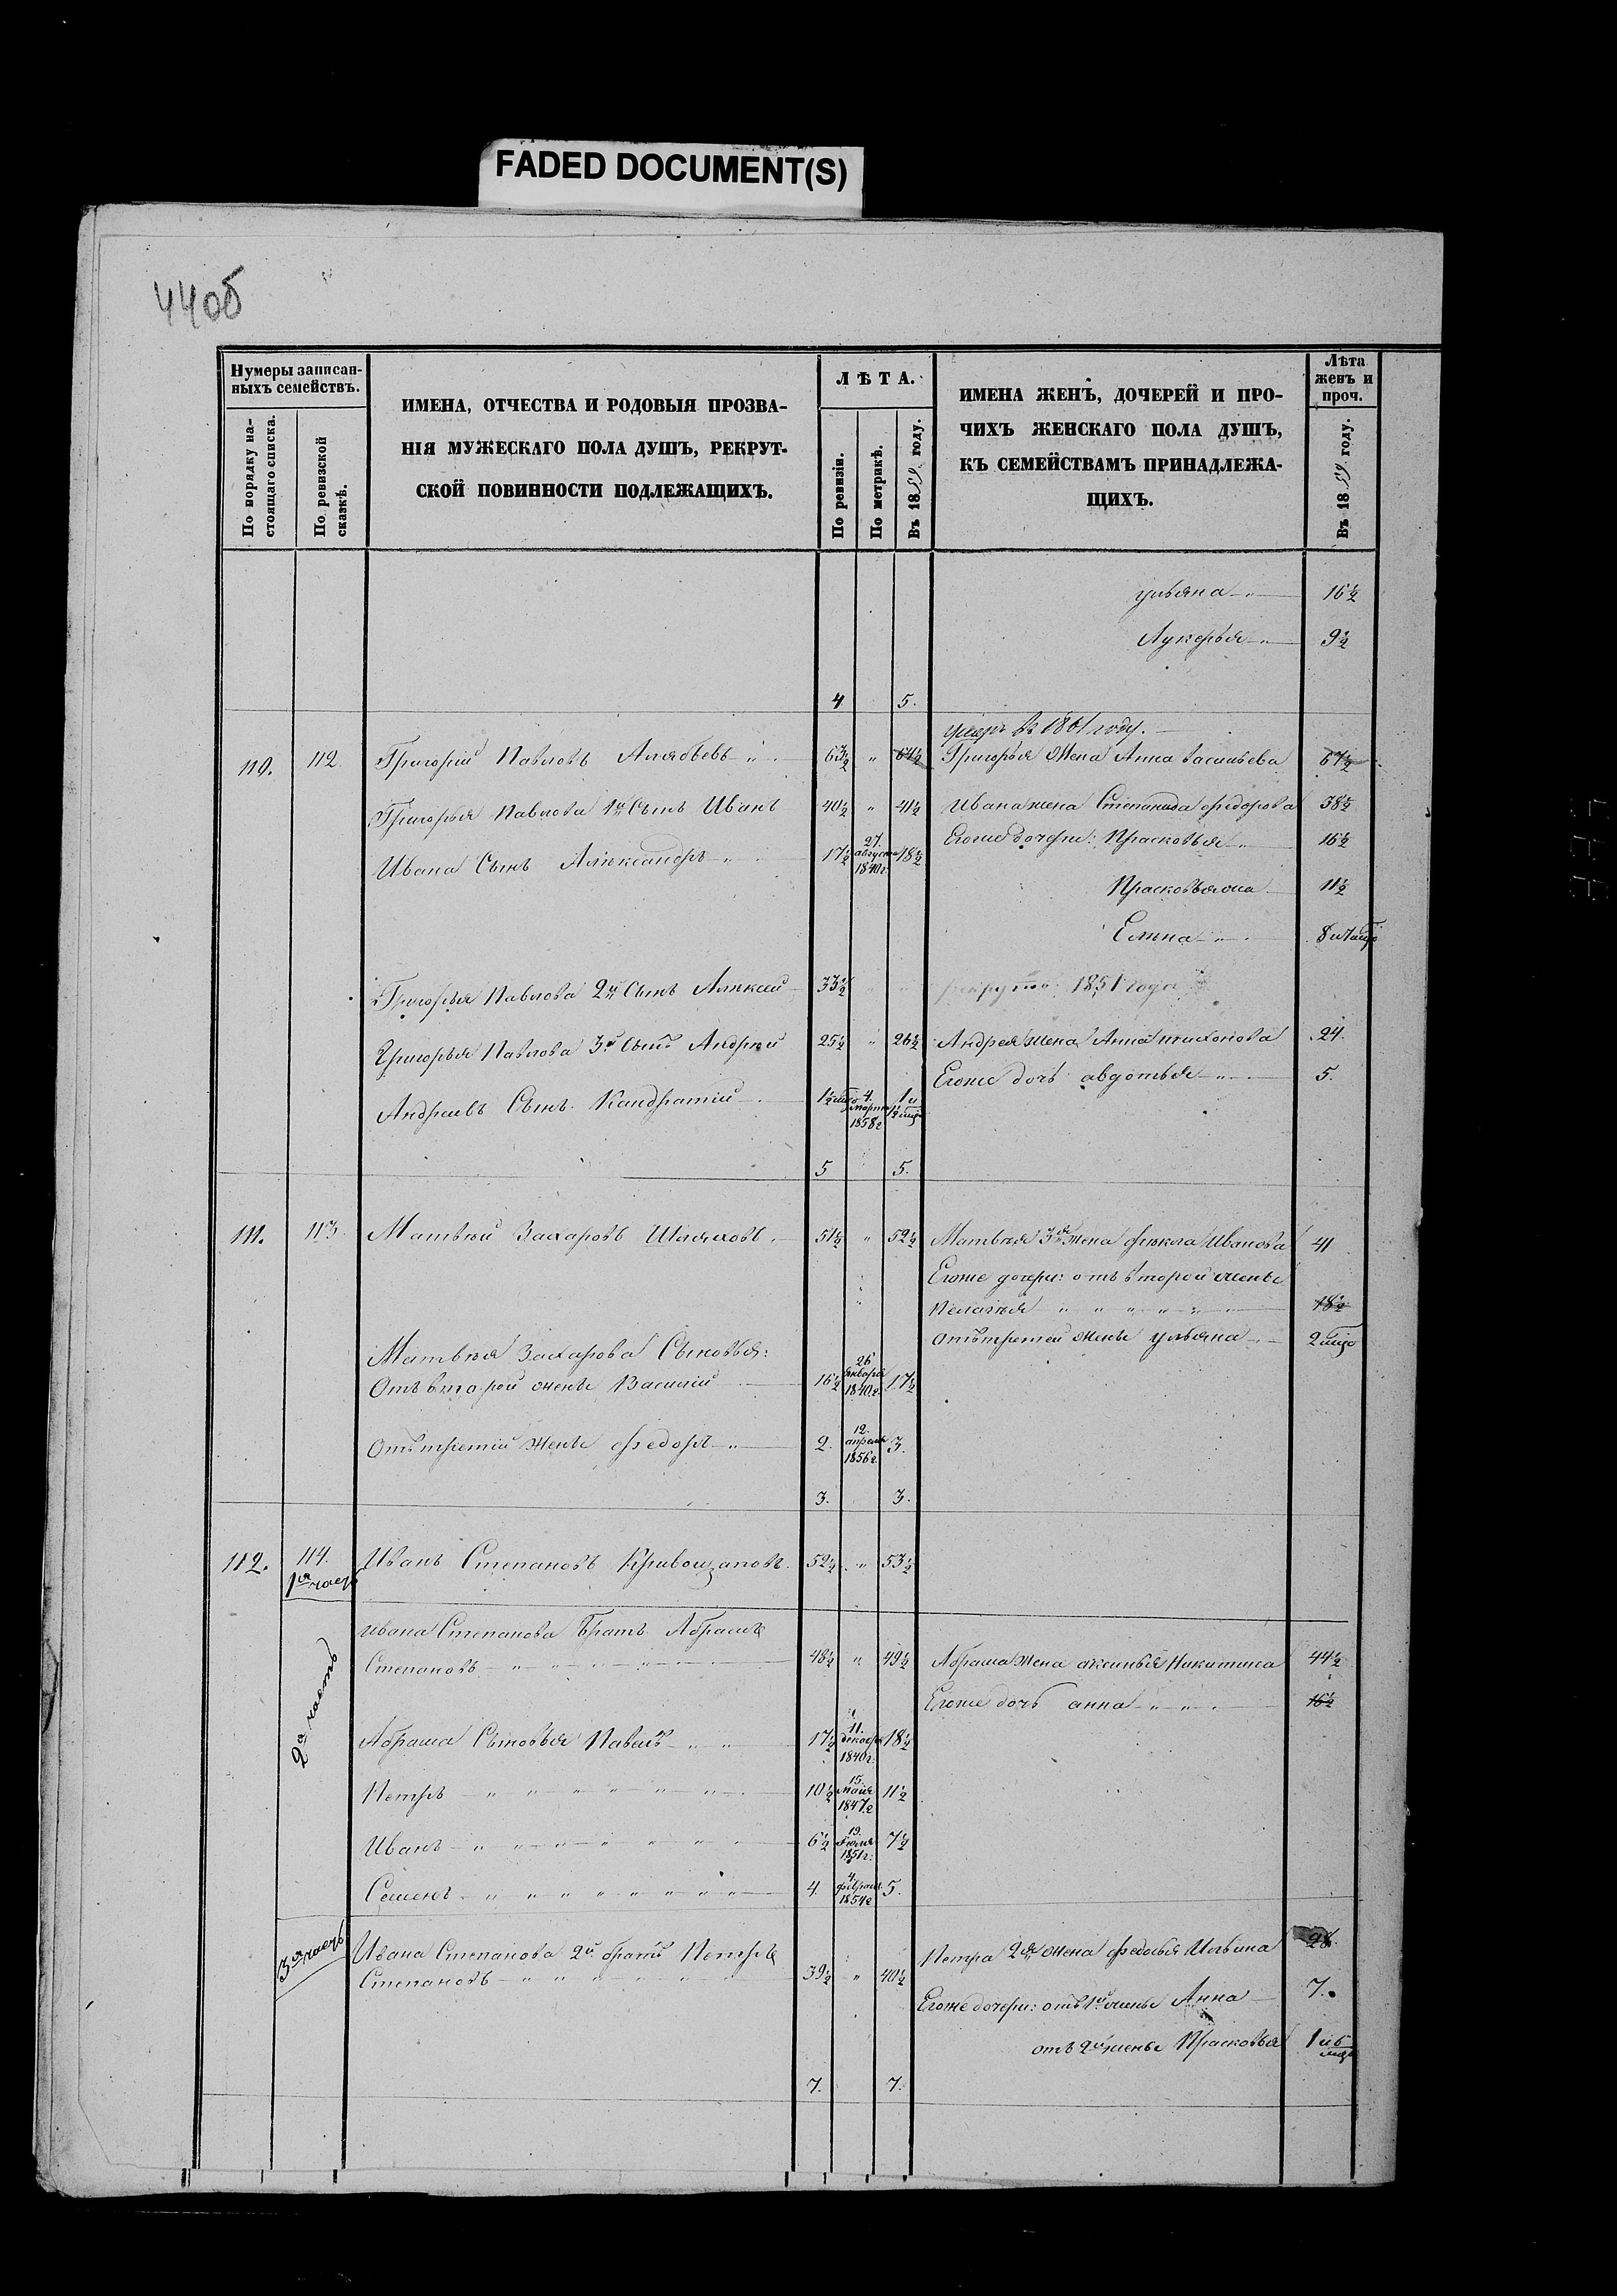 FADED DOCUMENT(S)
44об
Нумеры записан-
ныхъ семействъ.
По порядку на-
стоящаго списка.
По ревизской
сказкѣ.
ИМЕНА, ОТЧЕСТВА И РОДОВЫЯ ПРОЗВА-
НІЯ МУЖЕСКАГО ПОЛА ДУШЪ, РЕКРУТ-
СКОЙ ПОВИННОСТИ ПОДЛЕЖАЩИХЪ.
ЛѢТА.
По ревизіи.
По метрикѣ.
Въ 1859 году.
ИМЕНА ЖЕНЪ, ДОЧЕРЕЙ И ПРО-
ЧИХЪ ЖЕНСКАГО ПОЛА ДУШЪ,
КЪ СЕМЕЙСТВАМЪ ПРИНАДЛЕЖА-
ЩИХЪ.
Лѣта
женъ и
проч.
Въ 1859 году.
ульяна " 16½
Лукерья " 9½
4 5.
умеръ въ 1861 году.
110. 112. Григорій Павловъ Алябьевъ " 63½ " 64½ Григорья Жена Анна васильева 67½
Григорья Павлова 1й Сынъ Иванъ 40½ " 41½ Ивана жена Степанида федорова 38½
Ивана Сынъ Александръ " 17½ 27. августа 1840г. 18½ Егоже дочери: Прасковья " 16½
Прасковья она 11½
Елена " 8 и
Григорья Павлова 2й Сынъ Алексей 33½ " " рекрутъ 1851 года
Григорья Павлова 3й Сынъ Андрей 25½ " 26½ Андрея жена Анна тихонова 24.
Егоже дочь авдотья " 5.
Андреевъ Сынъ Кандратій 1½ мѣс 4. марта 1858г 1 и ½ мѣс
5 5.
111. 113. Матвей Захаровъ Шляховъ 51½ " 52½ Матвея 3я жена фекла Иванова 41
Егоже дочери: отъ второй жены
Пелагея " " " " " " 18½
отъ третей жены ульяна 2 мѣс
Матвея Захарова Сыновья:
Отъ второй жены Василий 16½ 26 Января 1840.г. 17½
Отъ третий жены федоръ " 2. 12. апреля 1856г. 3.
3. 3.
112. 114. Иванъ Степановъ Кривошаповъ. 52½ " 53½
1я часть
2я часть
Ивана Степанова братъ Абрамъ
Степановъ " " " " " 48½ " 49½ Абрама жена аксинья Никитина 44½
Егоже дочь анна " " " 16½
Абрама Сыновья Павелъ " " 17½ 11. декабр 1840г. 18½
Петръ " " " " " " " 10½ 15. Мая 1847.г 11½
Иванъ " " " " " " " 6½ 19. 1851г. 7½
Семенъ " " " " " " " " 4. 4. феврал. 1854г 5.
3я часть
Ивана Степанова 2й братъ Петръ
Степановъ " " " " " " 39½ " 40½
Петра 2я жена федосья Ильина 28.
Егоже дочери: отъ 1й жены Анна 7.
отъ 2й жены Прасковья 1 и 5 мѣс
7. 7.